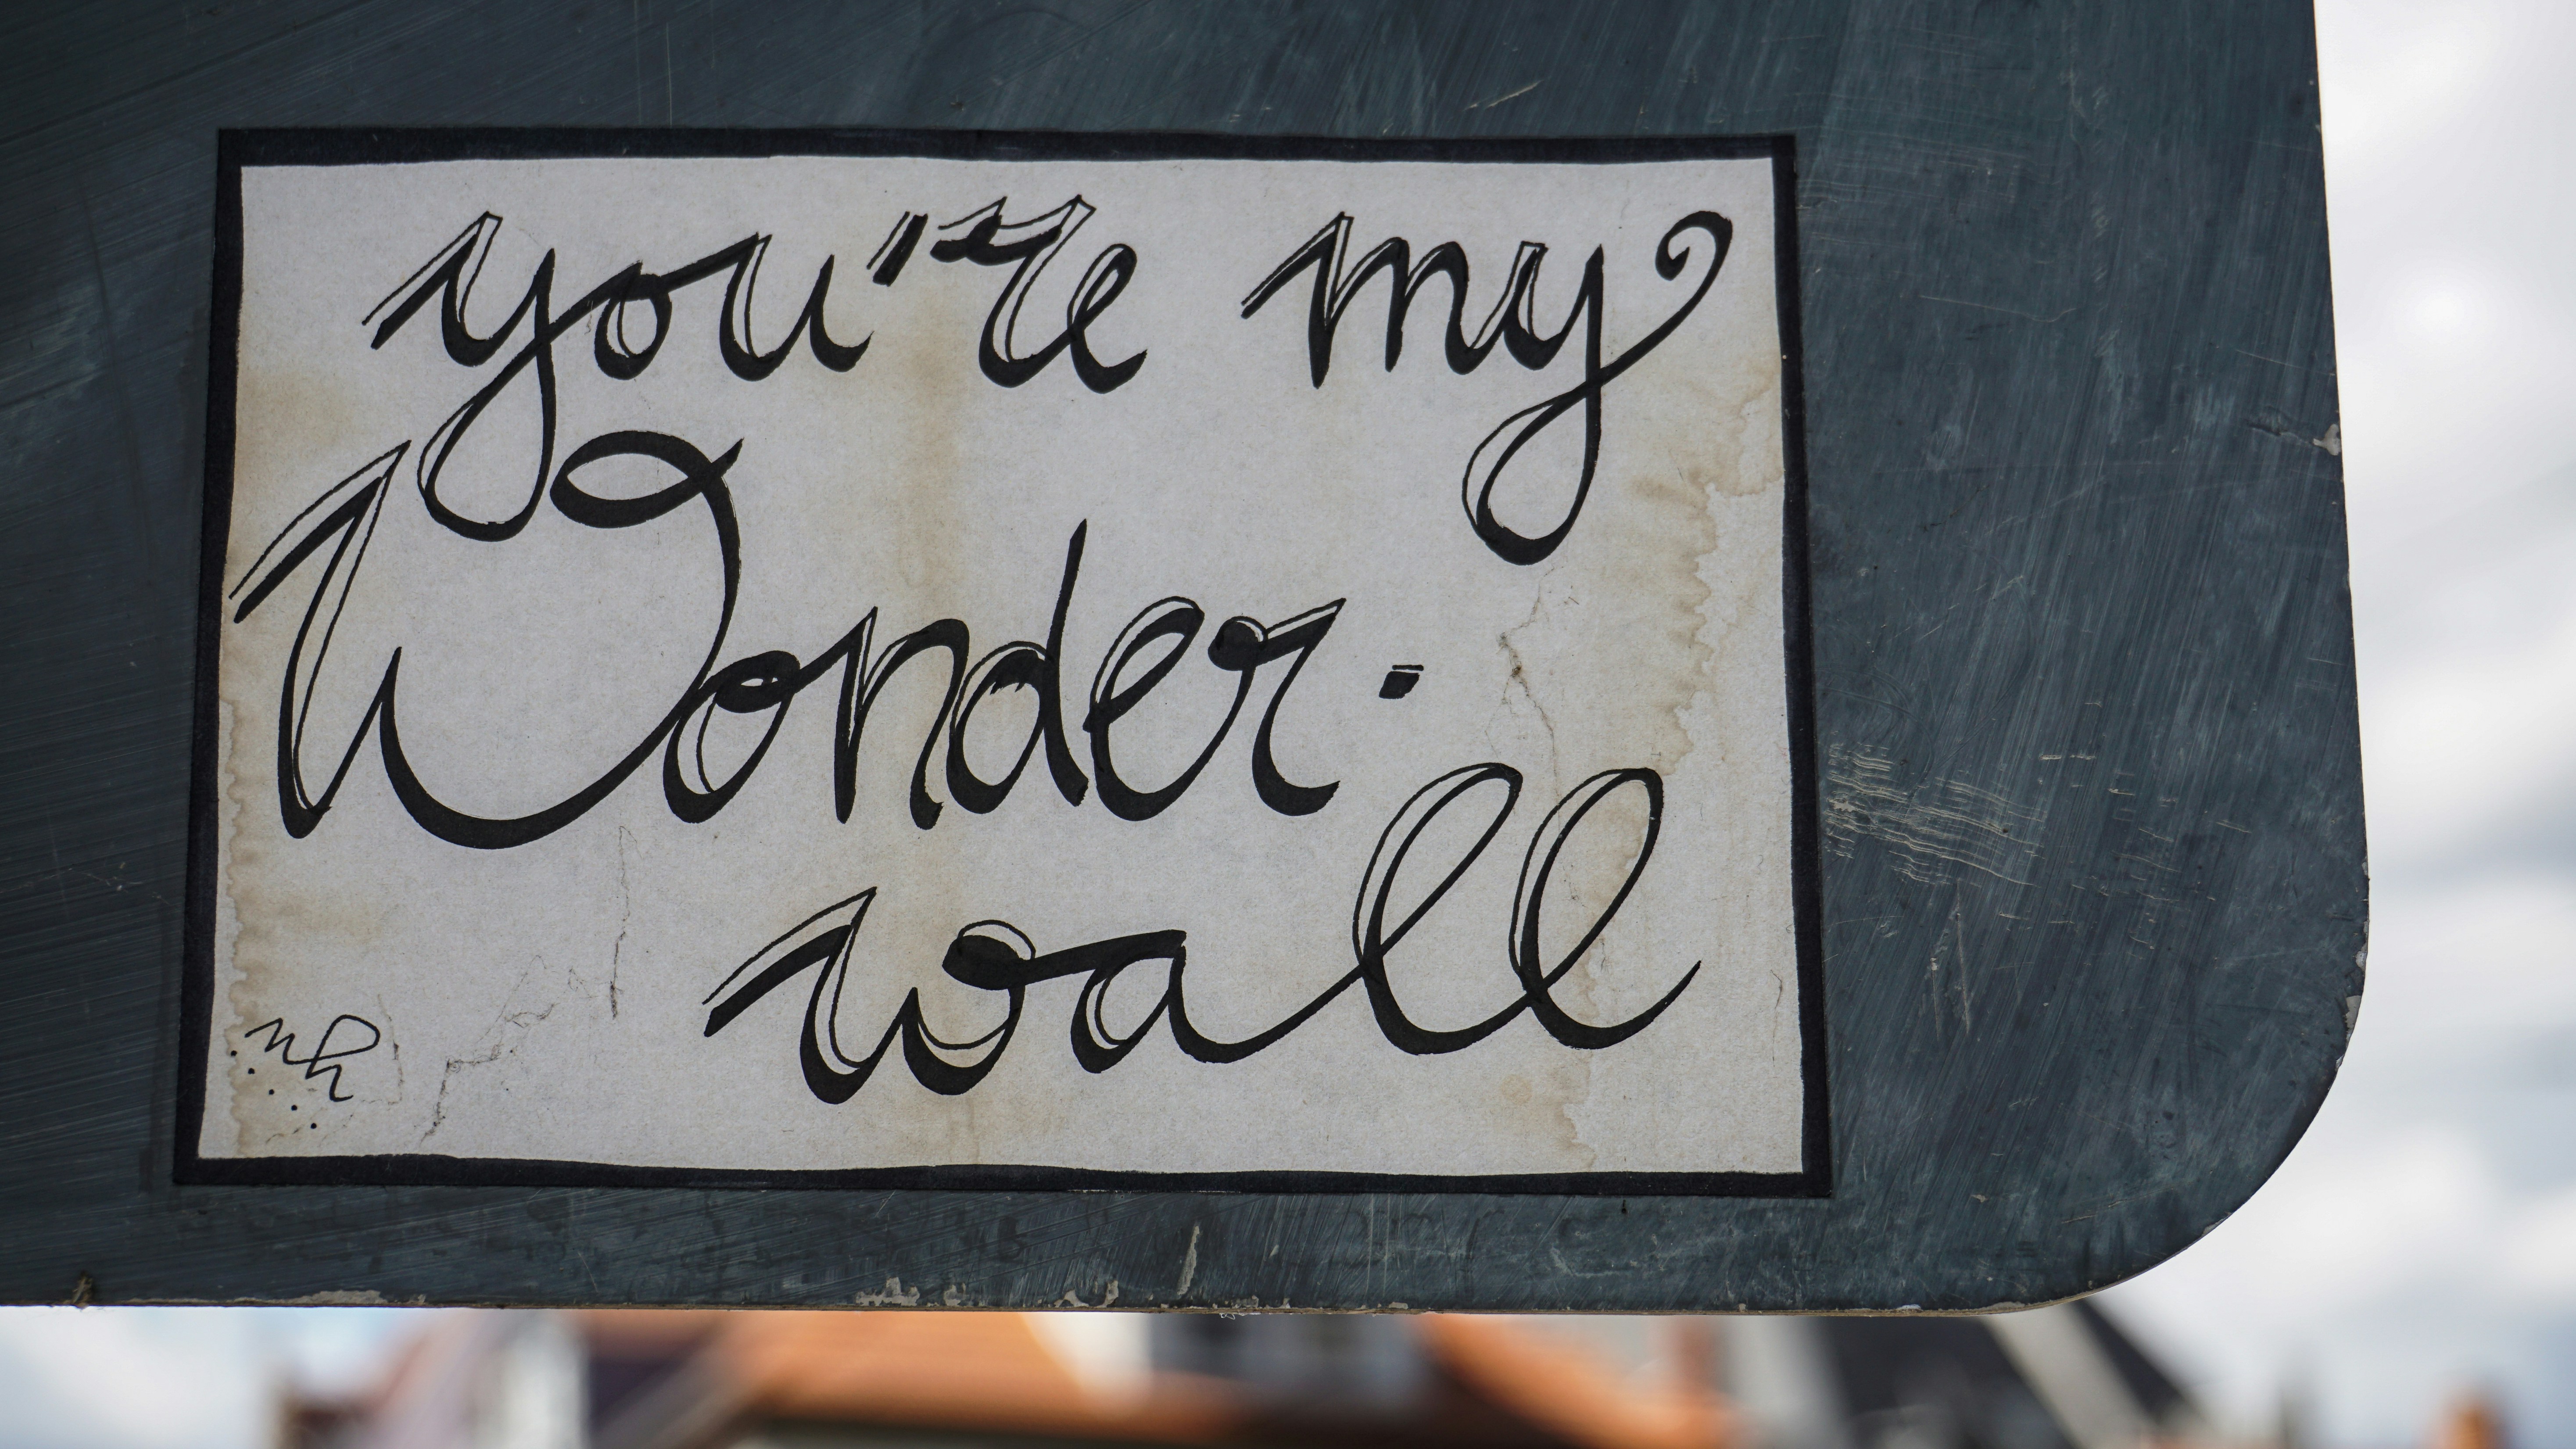 you're my
Wonder-
wall
nh